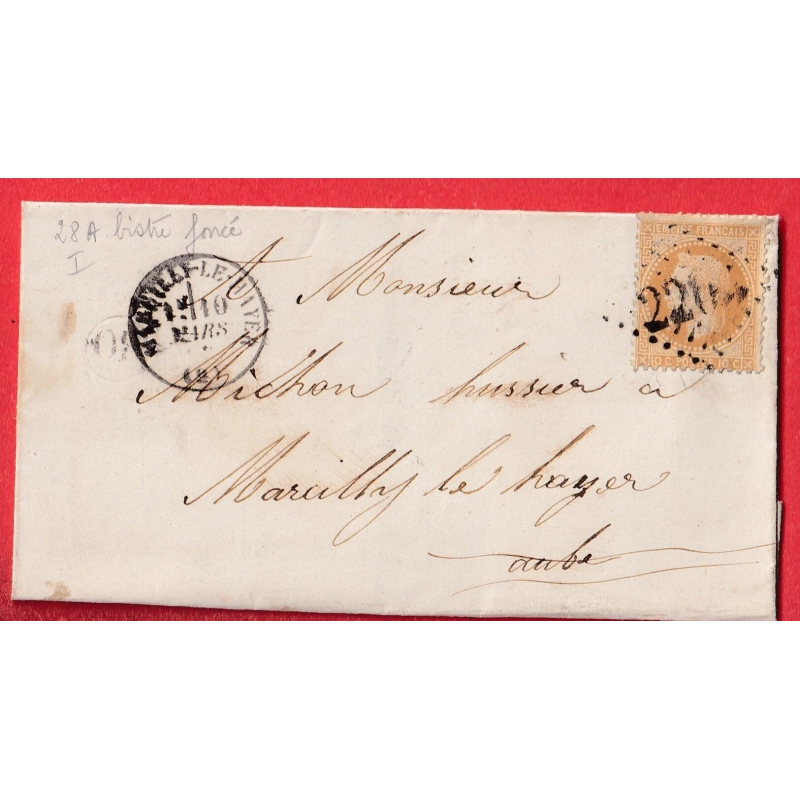 28 A bistre foncé
I
MARCILLY-LE-HAYER
10
MARS
(9)
OR
EMPIRE FRANÇAIS
10 C. 10 C.
A Monsieur
Michon hussier a
Marcilly le hayer
aube